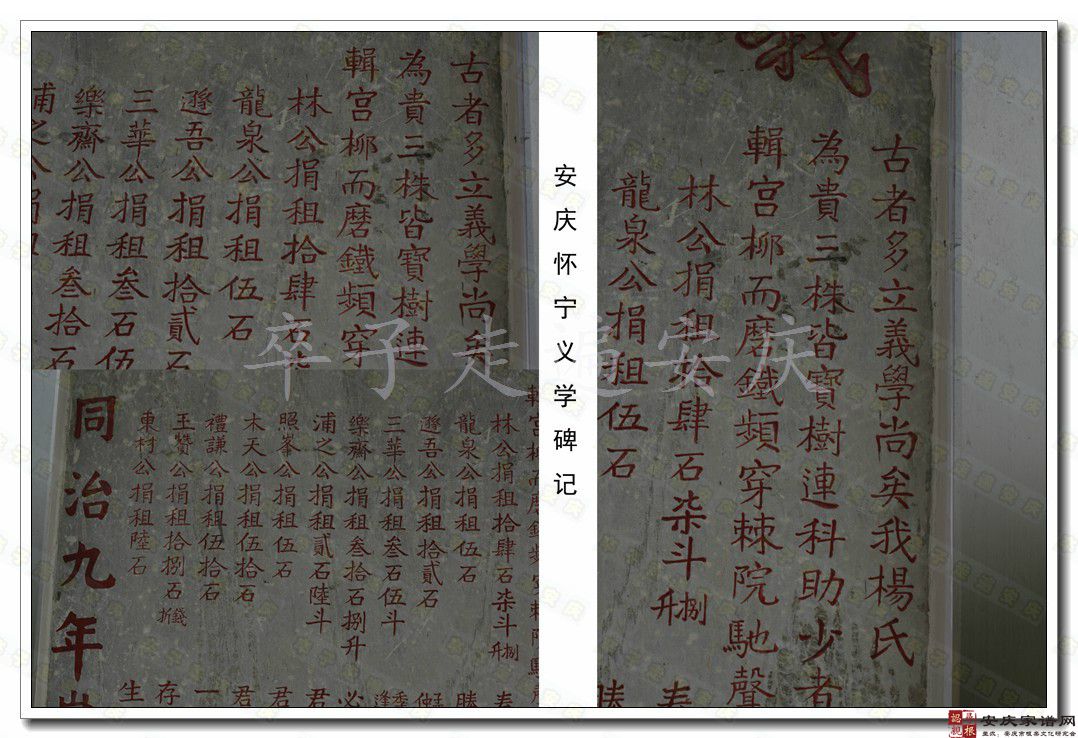 古者多立義學尚矣我楊氏
為貴三株皆寶樹連科助少者
輯宫柳而磨鐵頻穿棘院馳聲
林公捐租拾肆石柒斗捌升
龍泉公捐租伍石
勝
春
安庆怀宁义学碑记
古者多立義學尚矣
為貴三株皆寶樹連
輯宫柳而磨鐵頻穿
林公捐租拾肆石柒
龍泉公捐租伍石
遜吾公捐租拾貳石
三華公捐租叁石伍
樂齋公捐租叁拾石
浦之公捐租
輯宫柳而磨鐵頻穿棘院馳聲
林公捐租拾肆石柒斗捌升
龍泉公捐租伍石
遜吾公捐租拾貳石
三華公捐租叁石伍斗
樂齋公捐租叁拾石捌升
浦之公捐租貳石陸斗
照峯公捐租伍石
木天公捐租伍拾石
禮謙公捐租伍拾石
玉贊公捐租拾捌石折錢
東村公捐租陸石
春
勝
必
君
君
君
一
存
生
同治九年
卒子走遍安庆
安庆家谱网